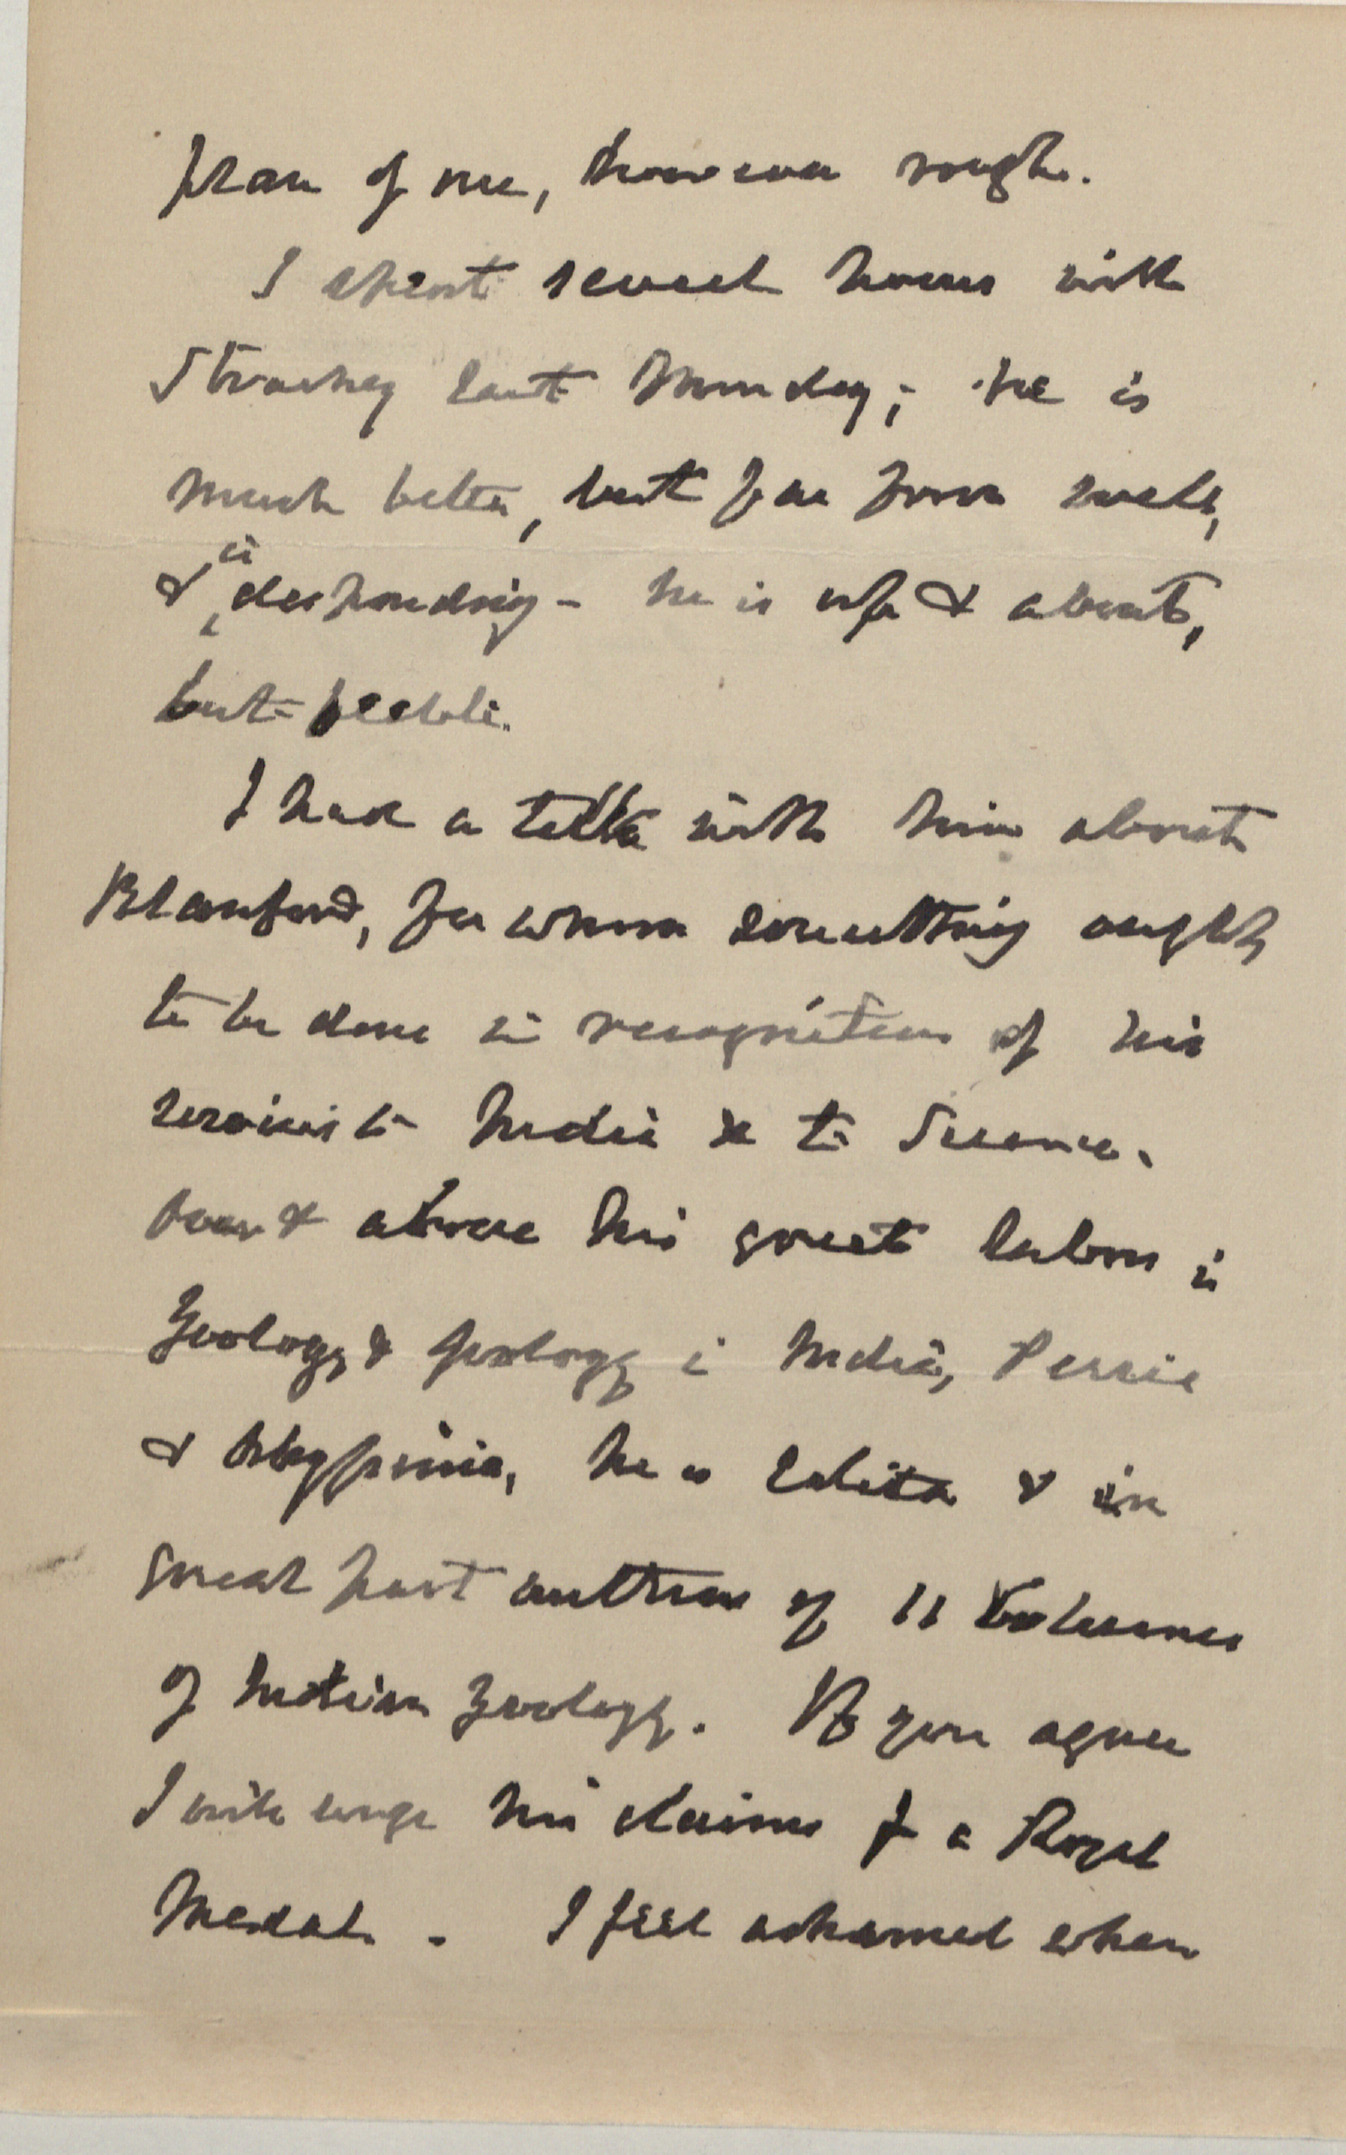 plan of one, however rough.
I spent several hours with
Strachey last Monday; he is
much better, but far from well,
& is desponding – he is up & about,
but feeble.
I had a talk with him about
Blanford, for whom something ought
to be done in recognition of his
services to India & to Science.
over & above his great labors in
Zoology & Geology in India, Persia
& Abyssinia, he is Editor & in
great part author of 11 Volumes
of Indian Zoology. If you agree
I will urge his claims for a Royal
Medal. I feel ashamed when